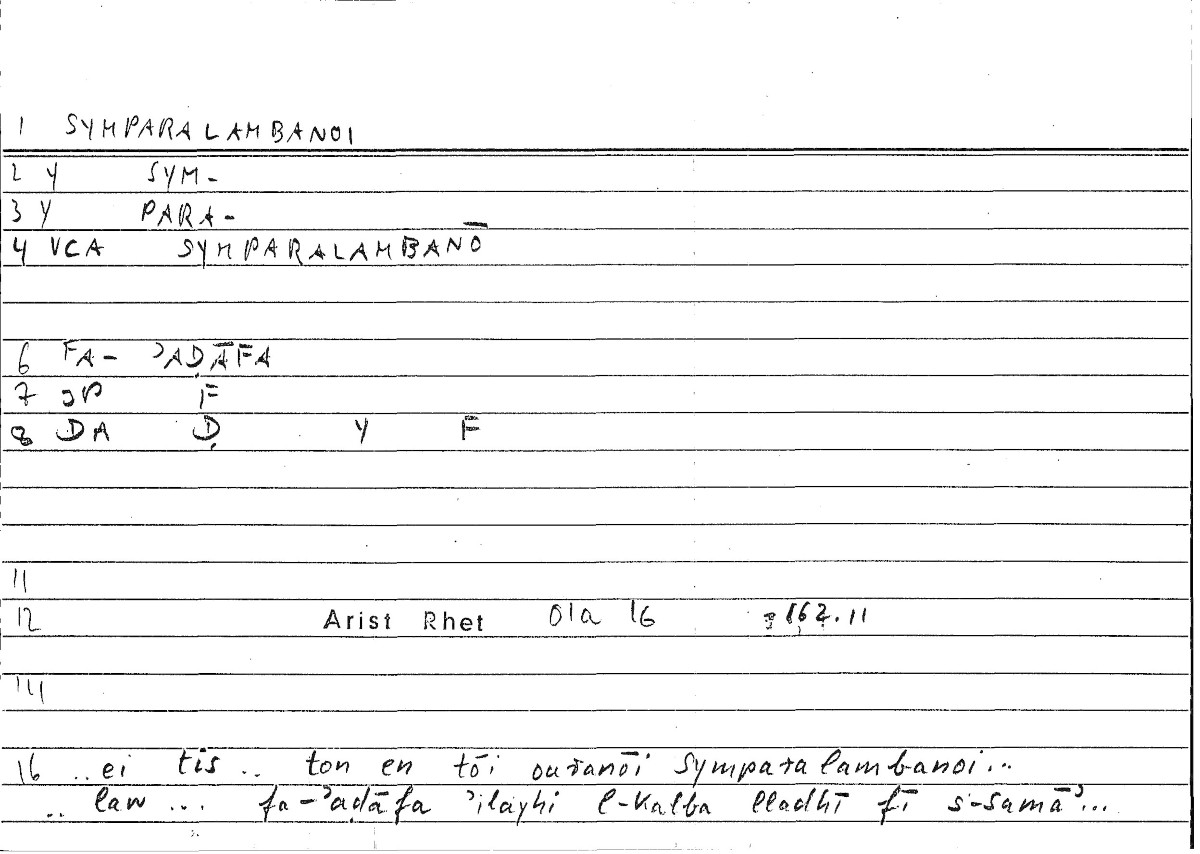 1 SYMPARALAMBANOI
2 Y SYM-
3 Y PARA-
4 VCA SYMPARALAMBANŌ
6 FA- ʾAḌĀFA
7 JP F
8 DA Ḍ Y F
11
12 Arist Rhet 01a 16 162.11
14
16 ..ei tis .. ton en tōi ouranōi symparalambanoi...
.. law ... fa-ʾaḍāfa ʾilayhi l-kalba lladhī fī s-samāʾ...